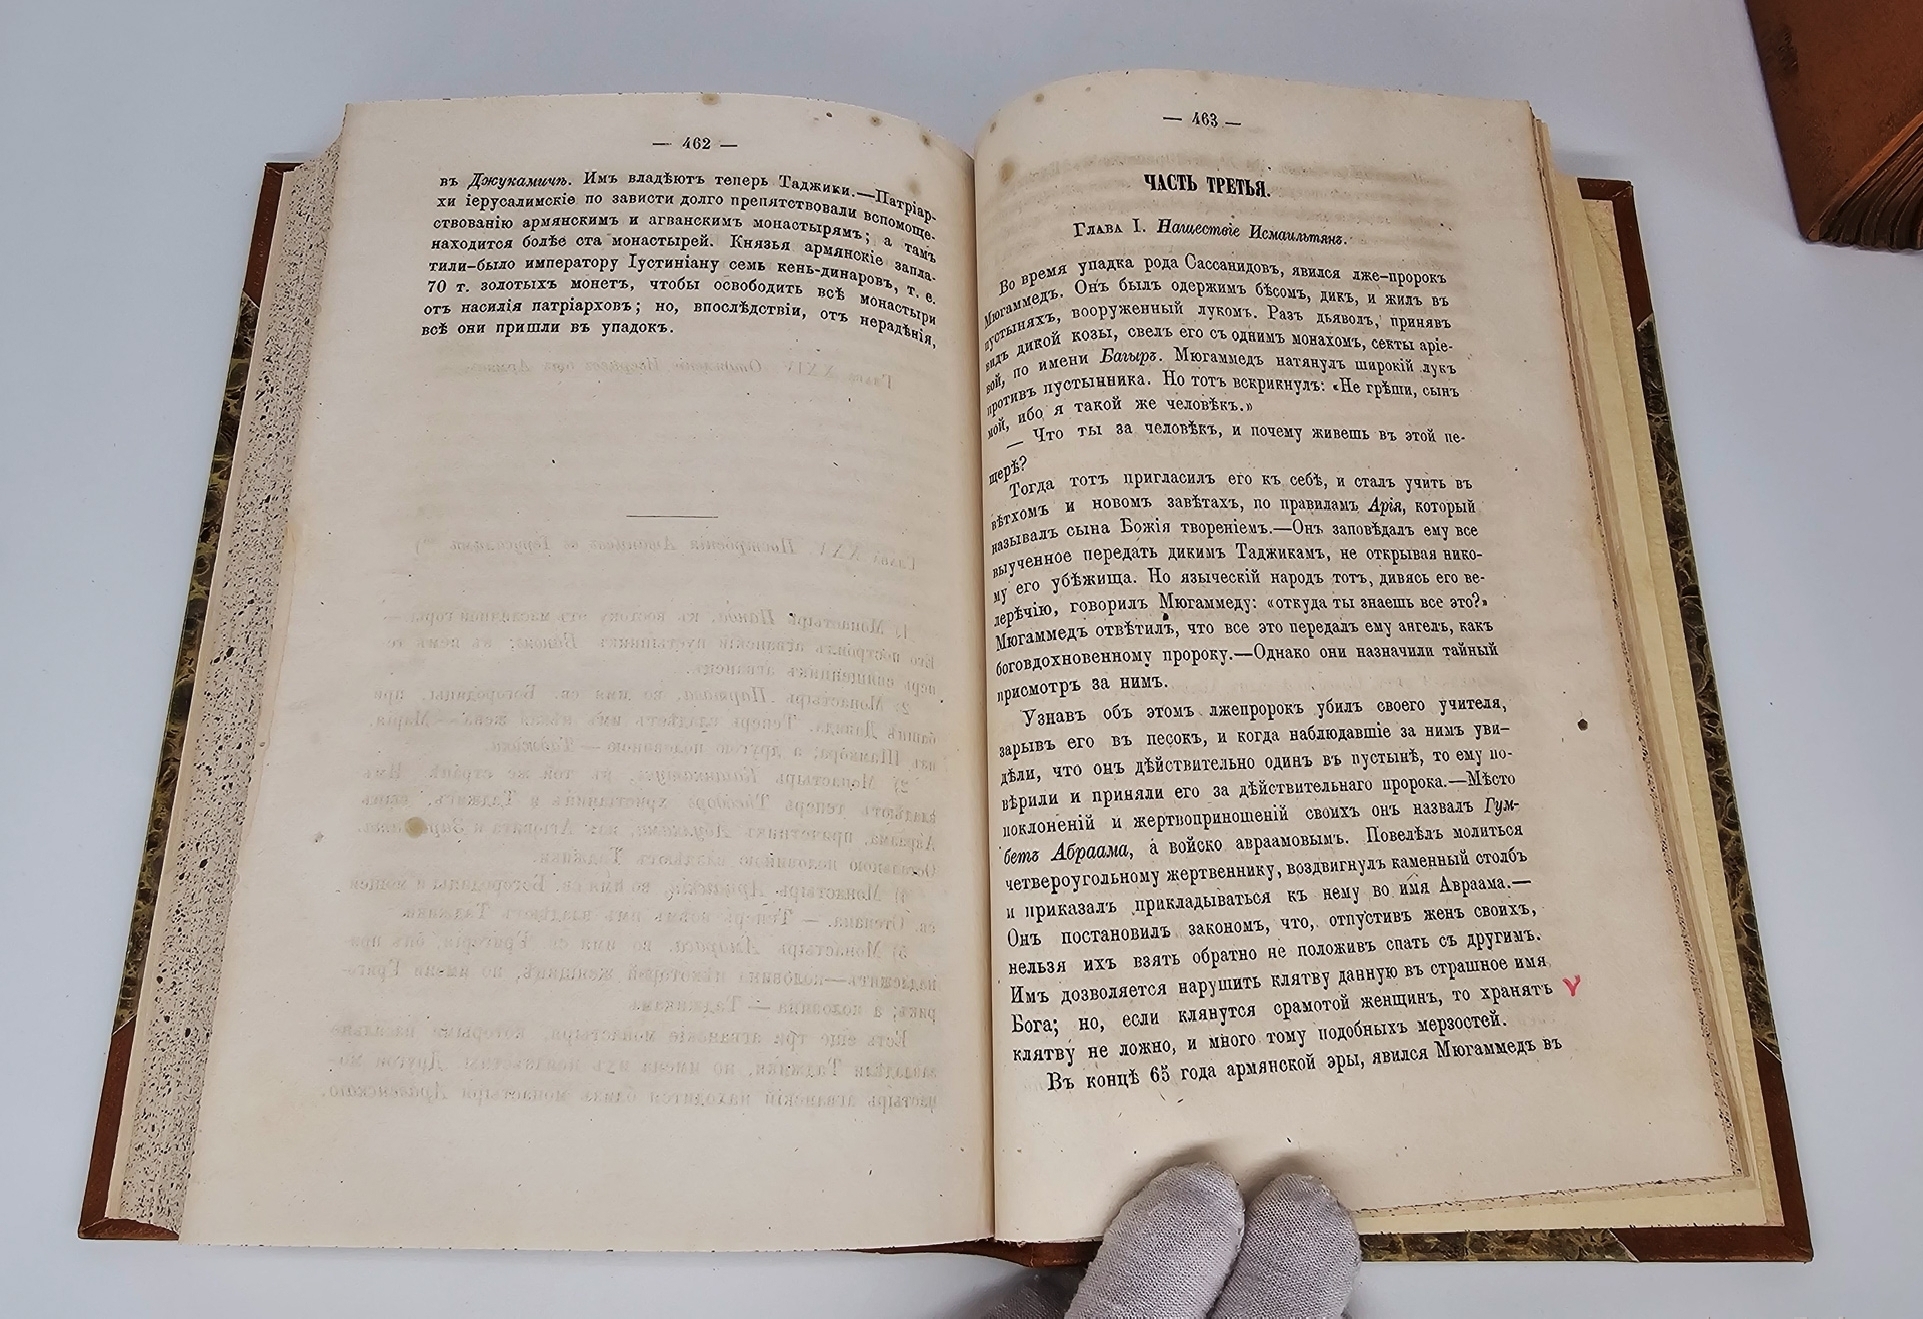 — 462 —
въ Джукамичъ. Имъ владѣютъ теперь Таджики.—Патріар-
хи іерусалимскіе по зависти долго препятствовали вспомоще-
ствованію армянскимъ и агванскимъ монастырямъ; а тамъ
находится болѣе ста монастырей. Князья армянскіе запла-
тили-было императору Іустиніану семь кень-динаровъ, т. е.
70 т. золотыхъ монетъ, чтобы освободить всѣ монастыри
отъ насилія патріарховъ; но, впослѣдствіи, отъ нерадѣнія,
всѣ они пришли въ упадокъ.
— 463 —
ЧАСТЬ ТРЕТЬЯ.
Глава I. Нашествіе Исмаильтянъ.
Во время упадка рода Сассанидовъ, явился лже-пророкъ
Мюгаммедъ. Онъ былъ одержимъ бѣсомъ, дикъ, и жилъ въ
пустыняхъ, вооруженный лукомъ. Разъ дьяволъ, принявъ
видъ дикой козы, свелъ его съ однимъ монахомъ, секты аріе-
вой, по имени Багыръ. Мюгаммедъ натянулъ широкій лукъ
противъ пустынника. Но тотъ вскрикнулъ: «Не грѣши, сынъ
мой, ибо я такой же человѣкъ.»
— Что ты за человѣкъ, и почему живешь въ этой пе-
щерѣ?
Тогда тотъ пригласилъ его къ себѣ, и сталъ учить въ
вѣтхомъ и новомъ завѣтахъ, по правиламъ Арія, который
называлъ сына Божія твореніемъ.—Онъ заповѣдалъ ему все
выученное передать дикимъ Таджикамъ, не открывая нико-
му его убѣжища. Но языческій народъ тотъ, дивясь его ве-
лерѣчію, говорилъ Мюгаммеду: «откуда ты знаешь все это?»
Мюгаммедъ отвѣтилъ, что все это передалъ ему ангелъ, какъ
боговдохновенному пророку.—Однако они назначили тайный
присмотръ за нимъ.
Узнавъ объ этомъ лжепророкъ убилъ своего учителя,
зарывъ его въ песокъ, и когда наблюдавшіе за нимъ уви-
дѣли, что онъ дѣйствительно одинъ въ пустынѣ, то ему по-
вѣрили и приняли его за дѣйствительнаго пророка.—Мѣсто
поклоненій и жертвоприношеній своихъ онъ назвалъ Гум-
бетъ Абраама, а войско авраамовымъ. Повелѣлъ молиться
четвероугольному жертвеннику, воздвигнулъ каменный столбъ
и приказалъ прикладываться къ нему во имя Авраама.—
Онъ постановилъ закономъ, что, отпустивъ женъ своихъ,
нельзя ихъ взять обратно не положивъ спать съ другимъ.
Имъ дозволяется нарушить клятву данную въ страшное имя
Бога; но, если клянутся срамотой женщинъ, то хранятъ
клятву не ложно, и много тому подобныхъ мерзостей.
Въ концѣ 65 года армянской эры, явился Мюгаммедъ въ